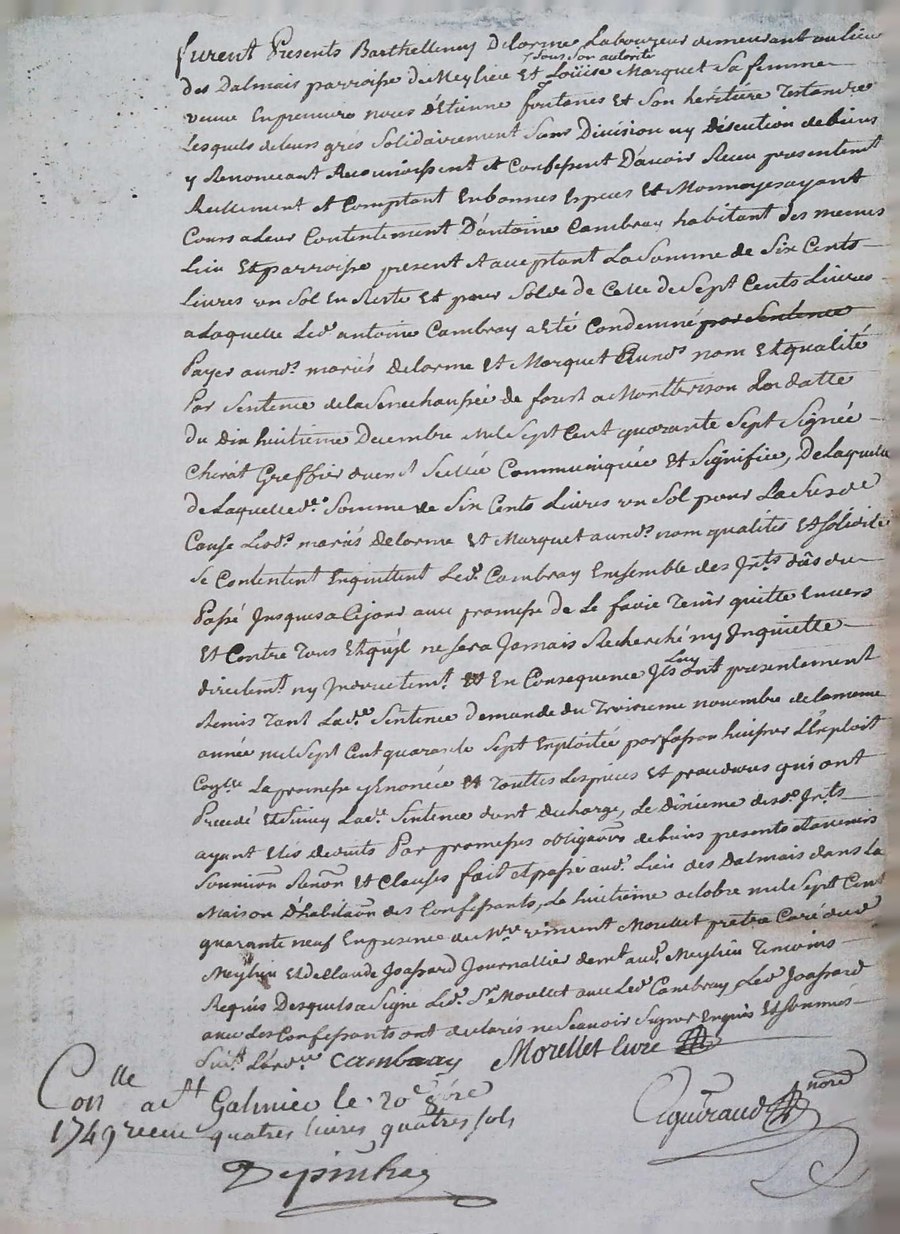 furent Presents Barthellemy Delorme Laboureur demeurant au lieu
des Dalmais parroisse de Meylieu Et Loüise Marquet Sa femme
sous son autorité
veuve En premiere noces d'Etienne fontanes Et Son heritiere Testamre
Lesquels de leurs grés Solidairement Sans Division ny Discution de biens
y Renonceant Reconnoissent et Confessent D'avoir Receu presentemt
Reellement et Comptant En bonnes Especes Et Monnoyes ayant
Cours a Leur Contentement D'antoine Cambray habitant des memes
Lieu Et parroisse present et acceptant La Somme de Six Cents
Livres un Sol En Reste Et pour Solde de Celle de Sept Cents Livres
a Laquelle Led. antoine Cambray a Eté Condemné par Sentence
Payer auxds. mariés Delorme Et Marquet Auxds. nom Et qualité
Par Sentence de la Senechaussée de forest a Montbrison En datte
du Dix huitieme Decembre mil Sept Cent quarante Sept Signée
Chirat Greffier duemt Scellée Communiquée Et Signifiée, De Laquelle
de Laquelle de. Somme de Six Cents Livres un Sol pour La Susde
Cause Lesds. mariés Delorme Et Marquet auxds. nom qualités Et Solidité
Se Contentent Enquittent Led. Cambray Ensemble des Jnts. dûs du
Passé Jusques a Cejour avec promesse De Le faire Tenir quitte Envers
Et Contre Tous Et qu'jl ne Sera Jamais Recherché ny Jnquietté
directemt. ny Jndirectemt. Et En Consequence Jls Luy ont presentement
Remis Tant Lade. Sentence demande du Troisieme novembre de la meme
année mil Sept Cent quarante Sept Exploitée par fasson huissier L'Exploit
La promesse y Enoncée Et Touttes Les pieces Et procedures qui ont
Precedé Et Suivy Lade. Sentence dont decharge, Le dixieme desds. Jnts.
ayant Etés deduits Par promesses obligaons de biens presents et avenir
Soumion Renon Et Clauses fait et passé aud. Lieu des Dalmais dans La
Maison D'habitaon des Confessants, Le huitieme octobre mil Sept Cent
quarante neuf En presence de Mre vincent Morellet prêtre Curé dud.
Meylieu Et de Claude Joassard Journallier demt. aud. Meylieu Temoins
Requis Desquels a Signé Led. Sr. Morellet avec Led. Cambray, Led. Joassard
avec des Confessants ont declarés ne Scavoir Signer Enquis Et Sommés
Suivt. L'ordce Cambray Morellet Curé
Conlle a St Galmier le 20e 8bre
1749 receu quatres livres quatres sols
Aguiraud nore
Depinhac